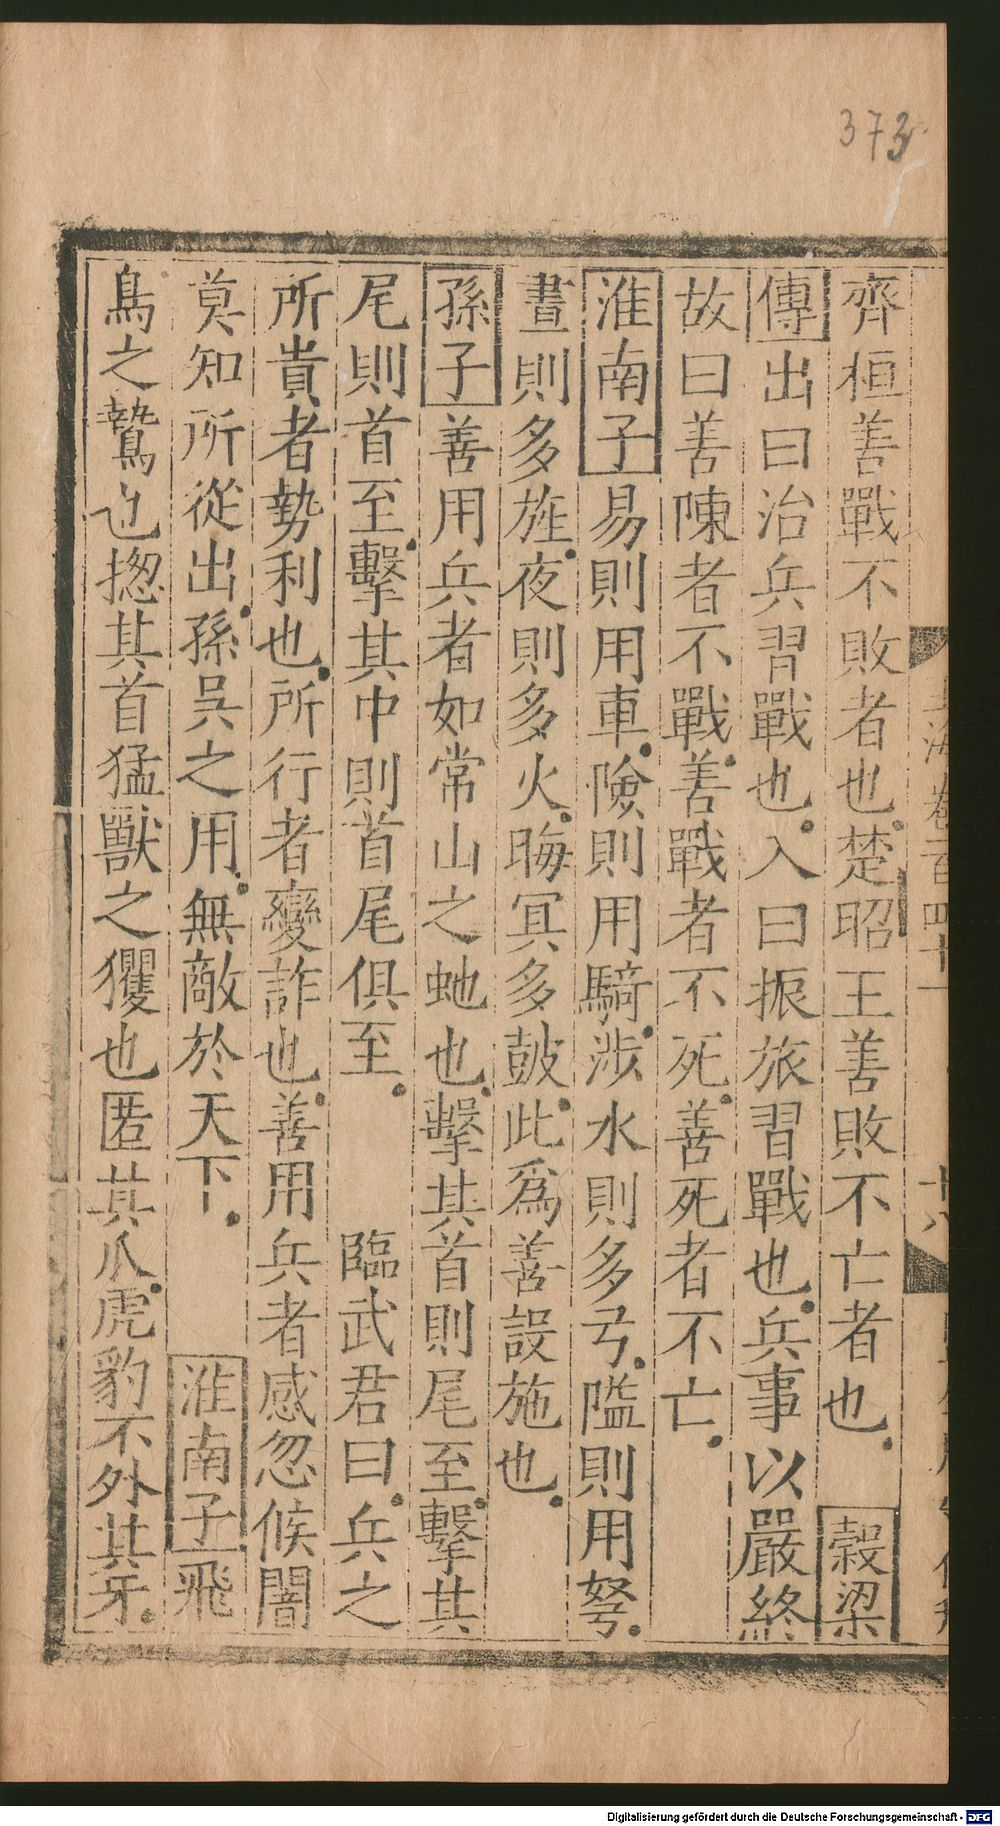 373
齊桓善戰不敗者也楚昭王善敗不亡者也　穀梁
傳出曰治兵習戰也入曰振旅習戰也兵事以嚴終
故曰善陳者不戰善戰者不死善死者不亡
淮南子易則用車險則用騎涉水則多弓隘則用弩
晝則多旌夜則多火晦冥多鼓此爲善設施也
孫子善用兵者如常山之虵也擊其首則尾至擊其
尾則首至擊其中則首尾俱至　臨武君曰兵之
所貴者勢利也所行者變詐也善用兵者感忽候闇
莫知所從出孫吳之用無敵於天下　淮南子飛
鳥之鷙也揔其首猛獸之玃也匿其爪虎豹不外其牙
Digitalisierung gefördert durch die Deutsche Forschungsgemeinschaft - DFG